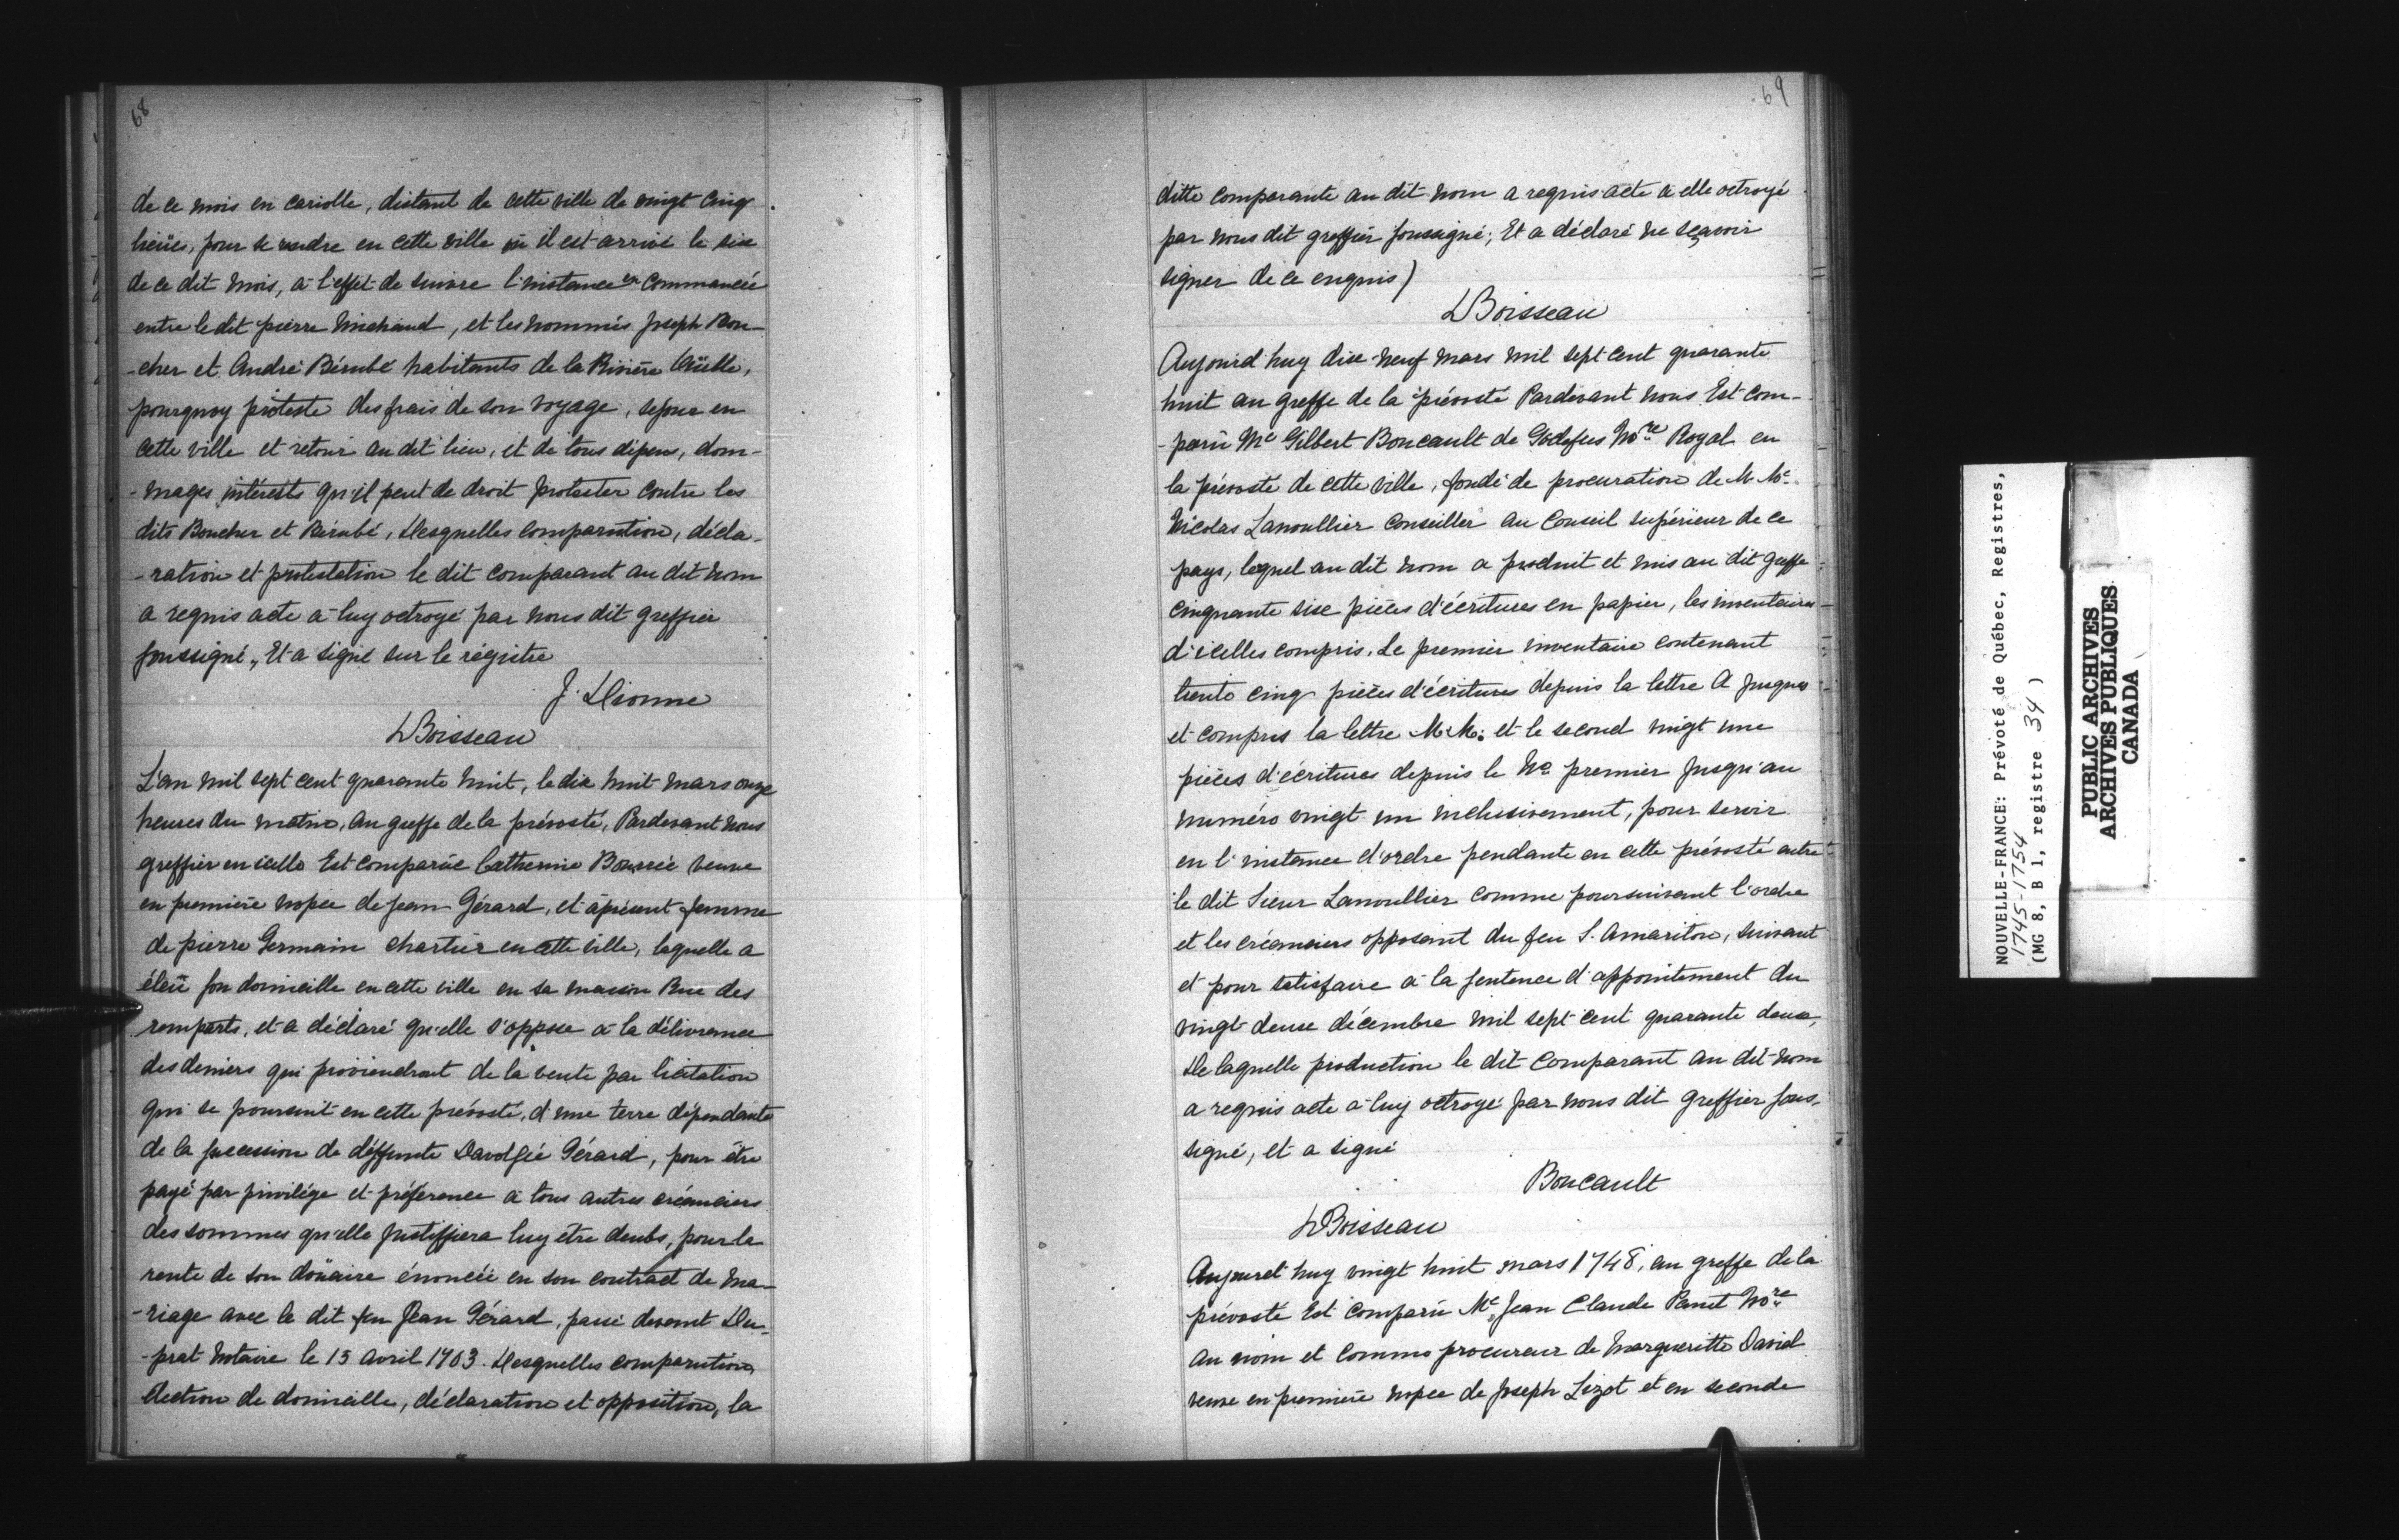 68
de ce mois en cariolle, distant de cette ville de vingt cinq
lieües, pour se rendre en cette ville où il est arrivé le six
de ce dit mois, à l'effet de suivre l'instance commancée
entre le dit pierre Michaud, et les nommés Joseph Bou-
-cher et André Bérubé habitants de la Rivière Oüelle,
pourquoy proteste des frais de son voyage, sejour en
cette ville et retour au dit lieu, et de tous dépens, dom-
-mages intérests qu'il peut de droit protester contre les
dits Boucher et Bérubé, Desquelles comparution, décla-
-ration et protestation le dit comparant au dit nom
a requis acte à luy octroyé par nous dit greffier
soussigné, Et a signé sur le régistre
J. Dionne
DBoisseau
L'an mil sept cent quarante huit, le dix huit mars onze
heures du matin, Au greffe de la prévosté, Pardevant nous
greffier en icelle Est comparüe Catherine Bourée veuve
en première nopce de Jean Gérard, et àprésent femme
de pierre Germain chartier en cette ville, laquelle a
éleü son domicille en cette ville en sa maison Rue des
remparts, et a déclaré qu'elle s'oppose à la délivrance
des deniers qui proviendront de la vente par licitation
qui se poursuit en cette prévosté, d'une terre dépendante
de la succession de déffunte Gérard, pour être
payé par privilége et préférence à tous autres créanciers
des sommes qu'elle Justiffiera luy être deubs, pour la
rente de son doüaire énoncée en son contract de ma-
-riage avec le dit feu Jean Gérard, passé devant Du-
-prat Notaire le 15 avril 1703. Desquelles comparution,
élection de domicille, déclaration et opposition, la
69
ditte comparante au dit nom a requis acte à elle octroyé
par nous dit greffier soussigné; Et a déclaré ne sçavoir
signer de ce enquis)
DBoisseau
Aujourd huy dix-neuf mars mil sept cent quarante
huit au greffe de la prévosté Pardevant nous Est com-
-parü Me Gilbert Boucault de Godefus Nore Royal en
la prévosté de cette ville, fondé de procuration de M Me
Nicolas Lanoullier Conseiller au Conseil supérieur de ce
pays, lequel au dit nom a produit et mis au dit greffe
cinquante six pièces d'écritures en papier, les inventaires
d'icelles compris, Le premier inventaire contenant
trente cinq pièces d'écritures depuis la lettre A Jusques
et compris la lettre M.M. et le second vingt une
pièces d'écritures depuis le No premier Jusqu'au
numéro vingt un inclusivement, pour servir
en l'instance d'ordre pendante en cette prévosté entre
le dit Sieur Lanoullier comme poursuivant l'ordre
et les créanciers opposant du feu S. Amariton, suivant
et pour satisfaire à la sentence d'appointement du
vingt deux décembre mil sept cent quarante deux,
De laquelle production le dit comparant au dit nom
a requis acte à luy octroyé par nous dit greffier sous-
signé, et a signé
Boucault
DBoisseau
Aujourd huy vingt huit mars 1748, au greffe de la
prévosté Est comparü Me Jean Claude Panet Nore
au nom et comme procureur de Margueritte David
veuve en première nopce de Joseph Lizot et en seconde
NOUVELLE-FRANCE: Prévoté de Québec, Registres,
1745-1754
(MG 8, B 1, registre 34)
PUBLIC ARCHIVES
ARCHIVES PUBLIQUES
CANADA